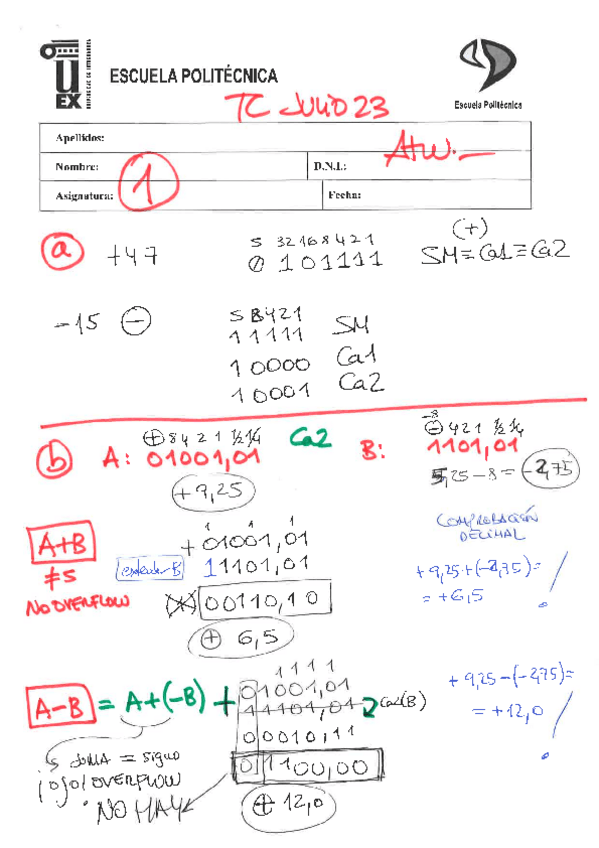 UEX
ESCUELA POLITÉCNICA
Escuela Politécnica
TC JULIO 23
Apellidos:
Nombre:
D.N.I.:
Asignatura:
Fecha:
1
a
+47
S 32 16 8 4 2 1
0 1 0 1 1 1 1
(+)
SM ≡ Ca1 ≡ Ca2
-15 (-)
S 8 4 2 1
1 1 1 1 1 SM
1 0000 Ca1
1 0001 Ca2
b
+ 8 4 2 1 ½ ¼
A: 01001,01
+9,25
Ca2
-8
- 4 2 1 ½ ¼
B: 1101,01
5,25-8 = -2,75
A+B
≠S
NO OVERFLOW
1 1 1
+ 01001,01
extender B
11101,01
00110,10
+ 6,5
COMPROBACIÓN
DECIMAL
+9,25+(-2,75)=
= +6,5
A-B = A+(-B) +
1 1 1 1
01001,01
11101,01 Ca2(B)
00010,11
01100,00
+ 12,0
SUMA = signo
¡ojo! OVERFLOW
NO HAY
+9,25-(-2,75)=
= +12,0